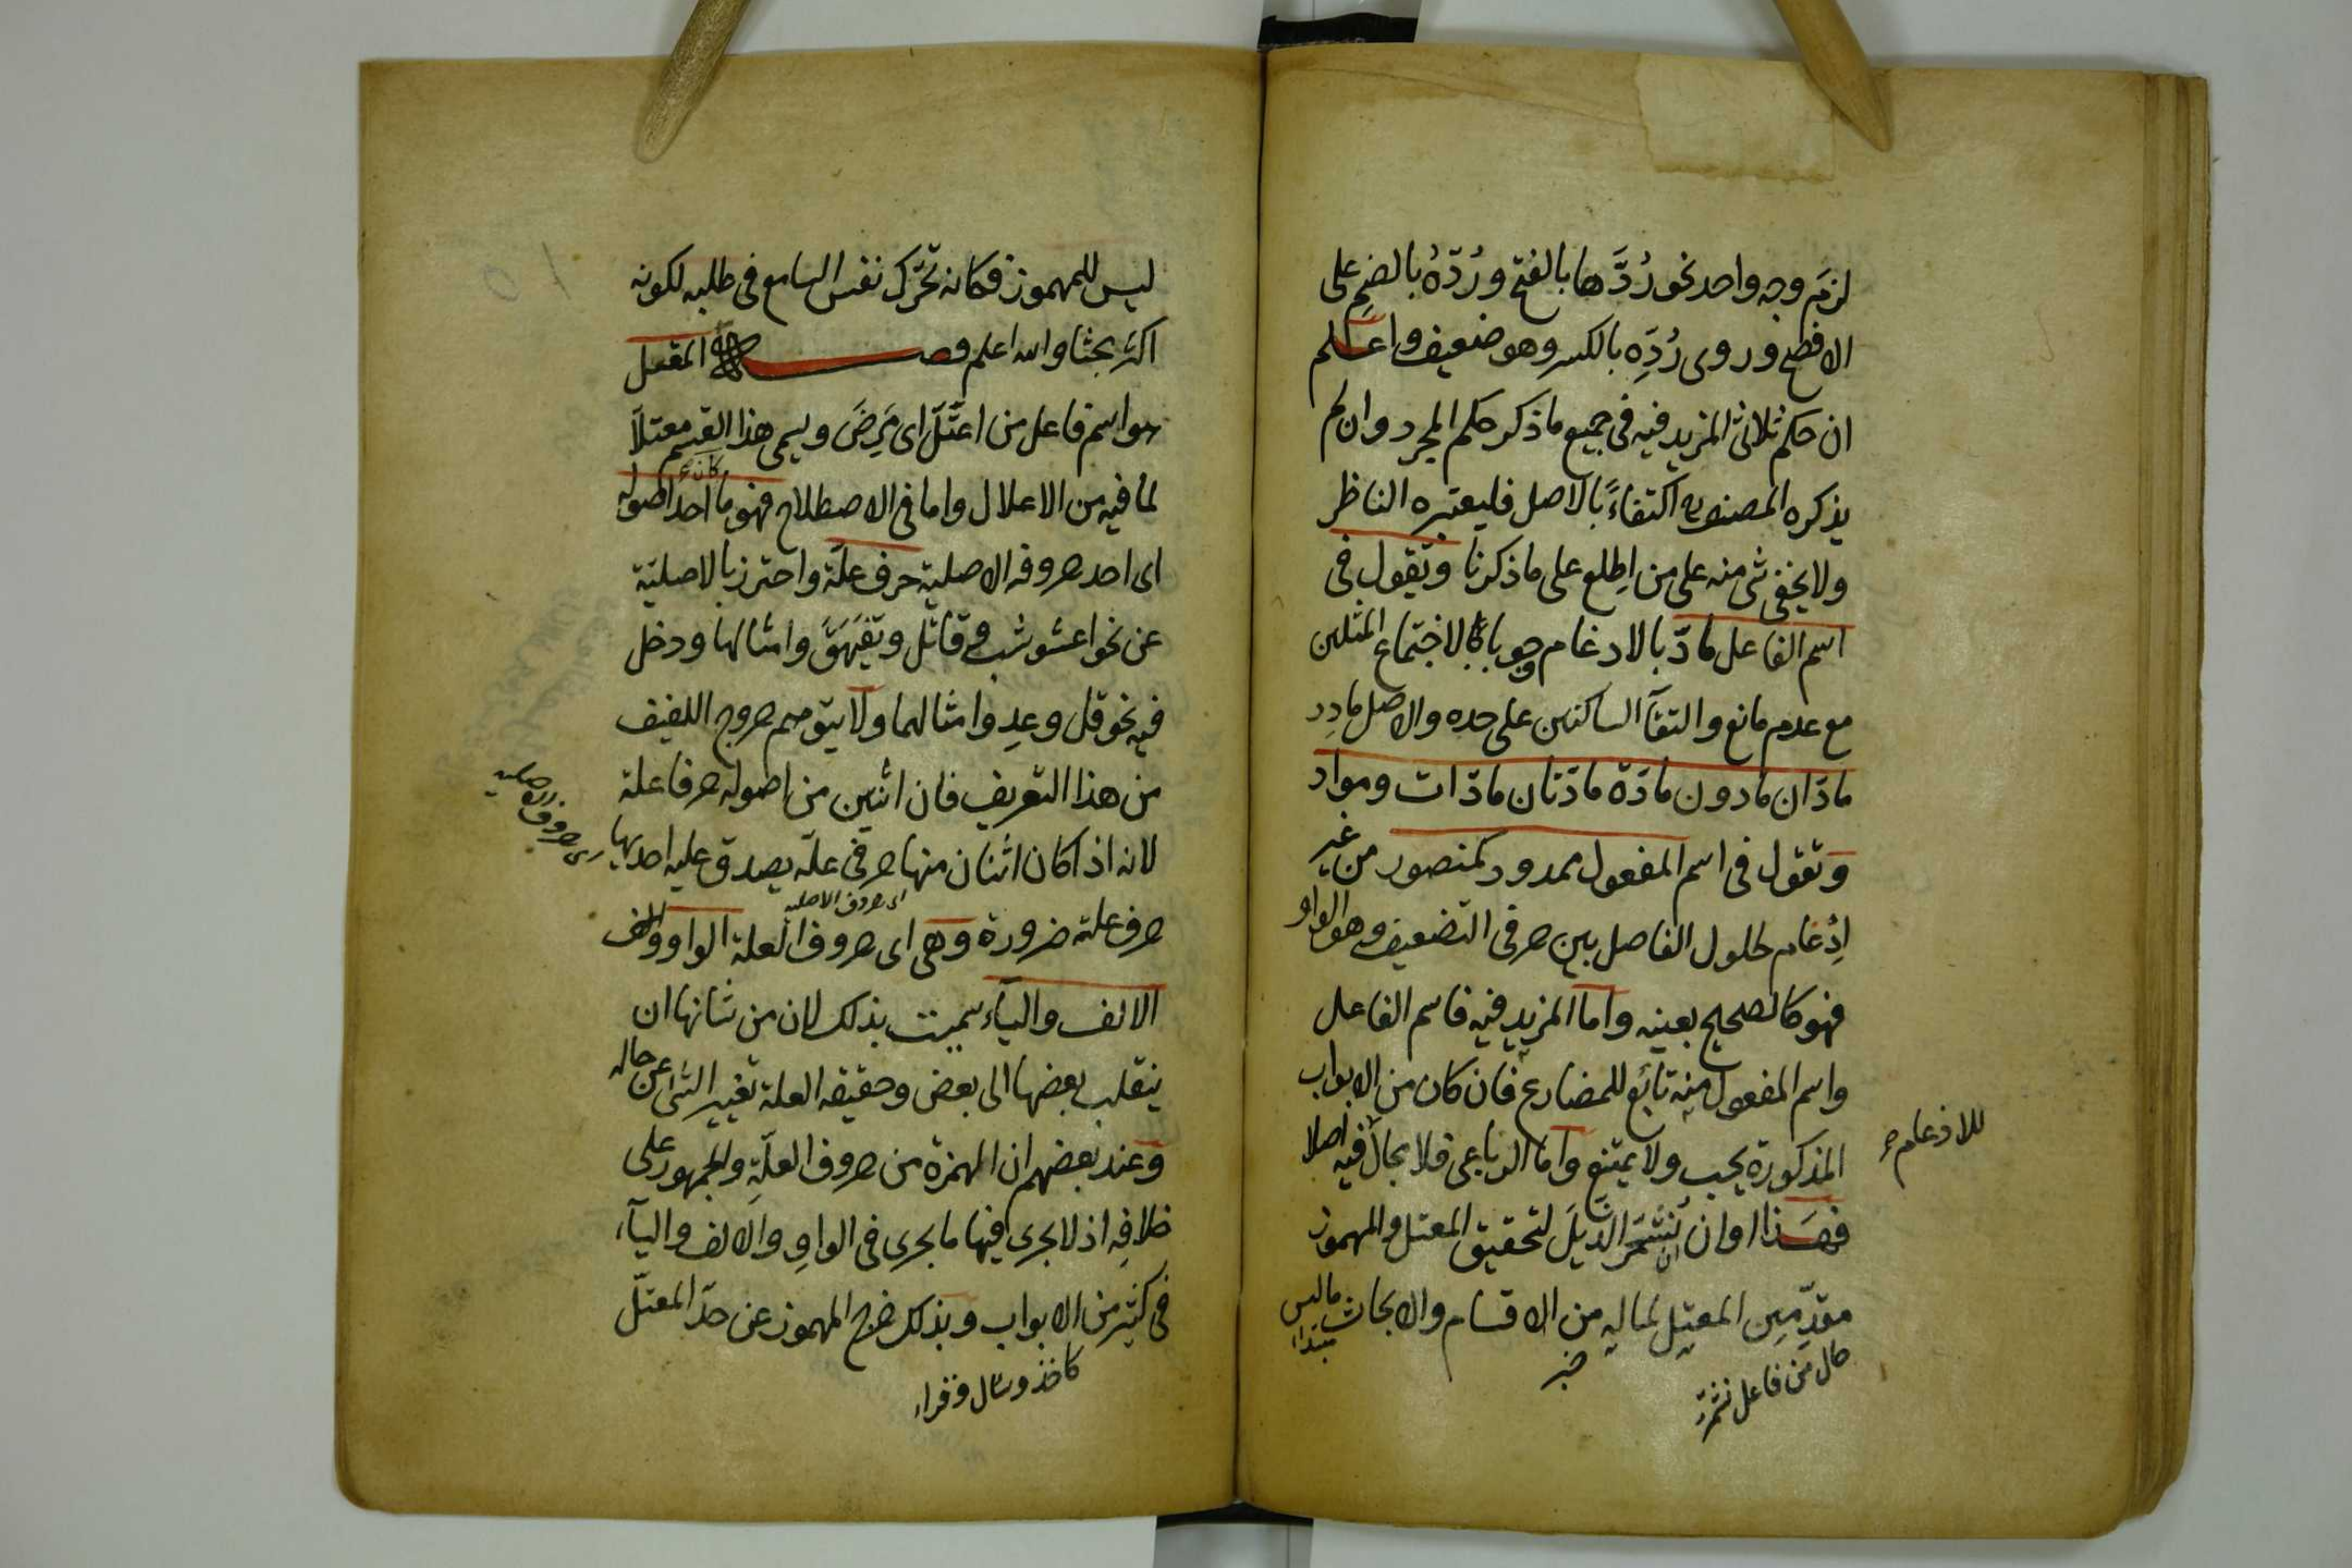 لزم وجه واحد نحو رُدَّها بالفتح ورُدُّهُ بالضم على
الافصح وروى رُدِّهِ بالكسر وهو ضعيف واعلم
ان حكم ثلاثى المزيد فيه فى جميع ما ذكر حكم المجرد وان لم
يذكره المصنف اكتفاءً بالاصل فليعتبره الناظر
ولا يخفى شئ منه على من اطلع على ما ذكرنا وتقول فى
اسم الفاعل مادّ بالادغام وجوبا لاجتماع المثلين
مع عدم مانع والتقآ الساكنين على حده والاصل مادِد
مادّان مادون مادّة مادّتان مادّات ومواد
وتقول فى اسم المفعول ممدود كمنصور من غير
اِدْغام لحلول الفاصل بين حرفى التضعيف وهو الواو
فهو كالصحيح بعينه واما المزيد فيه فاسم الفاعل
واسم المفعول منه تابع للمضارع فان كان من الابواب
المذكورة يجب ولا يمتنع واما الرباعى فلا مجال فيه اصلا
للادغام
فهذا اوان ان نُشَمِّرَ الذَّيلَ لتحقيق المعتل والمهموز
مقدّمين المعتل لما له من الاقسام والابحاث ما ليس
مبتداء
خبر
حال من فاعل نشمّر
ليس للمهموز فكانه تحرّك نفس السامع فى طلبه لكونه
اكثر بحثا والله اعلم فصل المعتل
هو اسم فاعل من اعتَلَّ اى مَرِضَ ويسمى هذا القسم معتلاً
لما فيه من الاعلال واما فى الاصطلاح فهو ما كان احد اصوله
اى احد حروفه الاصلية حرف علّة واحترز بالاصليّة
عن نحو اعشوشب وقاتل وتفيهق وامثالها ودخل
فيه نحو قل وعِد وامثالهما ولا يتوهم خروج اللفيف
من هذا التعريف فان اثنين من اصوله حرفا علة
لانه اذا كان اثنان منها حرفى علّة يصدق عليه احديها
اى حروف الاصليه
حرف علة ضرورة وهى اى حروف العلة الواو و
اى حروف الاصليه
الالف واليآء سميت بذلك لان من شانها ان
ينقلب بعضها الى بعض وحقيقه العلة تغيير الشئ عن حاله
وعند بعضهم ان الهمزة من حروف العلّةِ والجمهور على
خلافِه اذ لا يجرى فيها ما يجرى فى الواوِ والالف واليآء
فى كثير من الابواب وبذلك خرج المهموز عن حدّ المعتلّ
كاخذ وسال وقراء